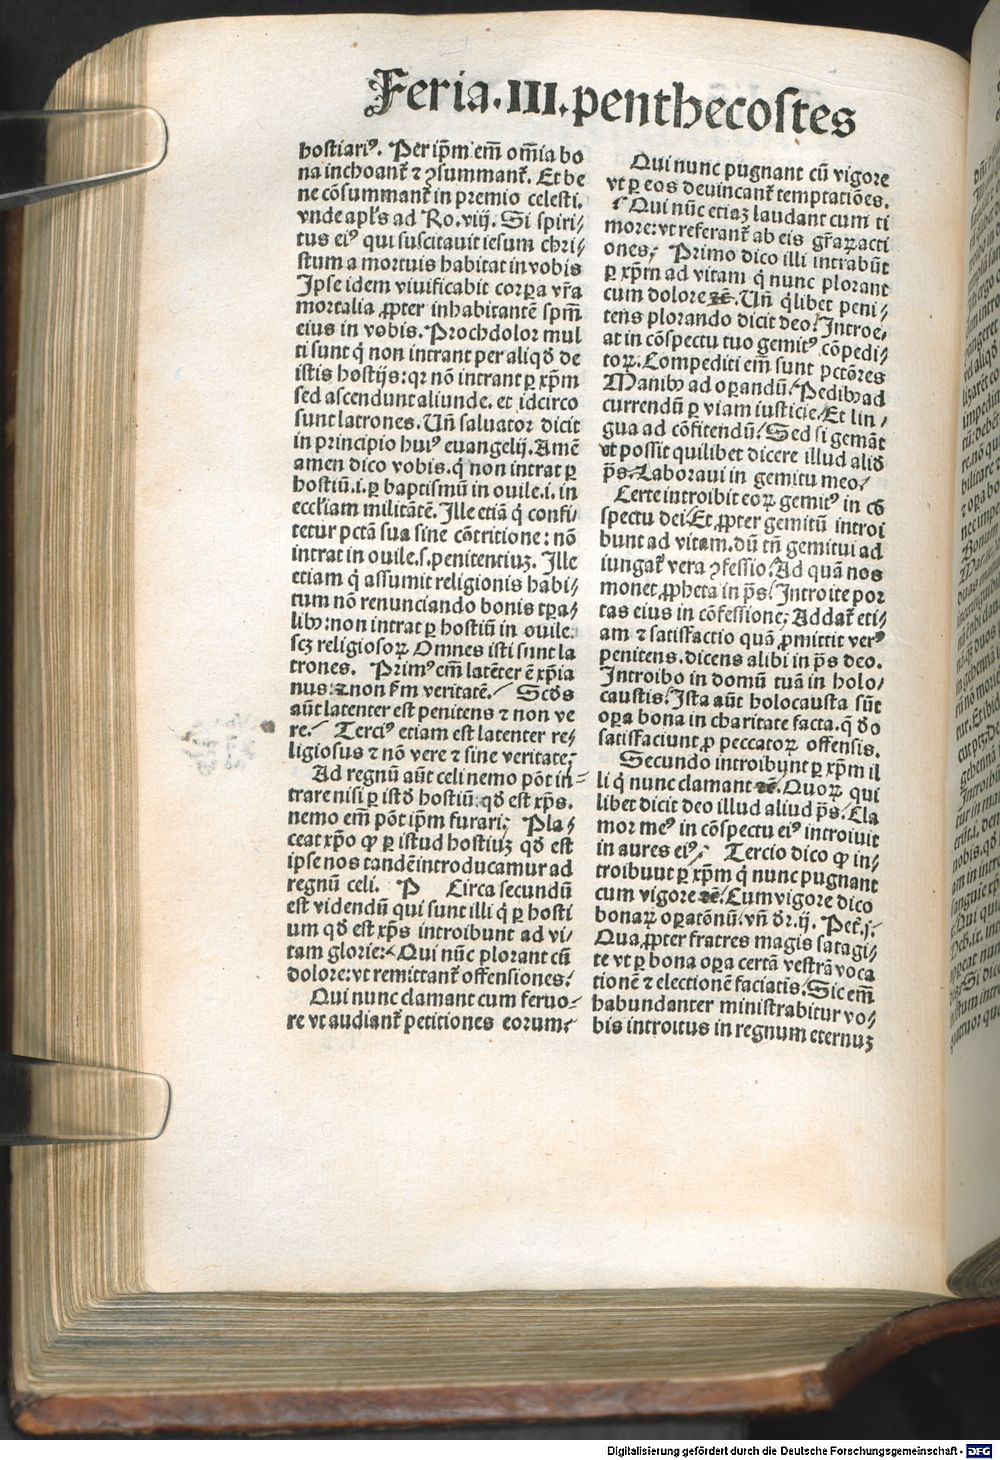 Feria.III.penthecostes
hostiariꝰ. Per ip̄m em̄ om̄ia bo
na inchoant᷑ ⁊ ꝯsummant᷑. Et be
ne cōsummant᷑ in premio celesti.
vnde apl's ad Ro. viij. Si spiri⸗
tus eiꝰ qui suscitauit iesum chri⸗
stum a mortuis habitat in vobis
Ipse idem viuificabit corꝑa vr̄a
mortalia ꝓpter inhabitantē spm̄
eius in vobis. Prochdolor mul
ti sunt q̇ non intrant per aliqd̄ de
istis hostijs: qr nō intrant ꝑ xp̄m
sed ascendunt aliunde. et idcirco
sunt latrones. Un̄ saluator dicit
in principio huiꝰ euangelij. Amē
amen dico vobis. q̇ non intrat ꝑ
hostiū .i. ꝑ baptismū in ouile .i. in
eccl'iam militātē. Ille etiā q̇ confi⸗
tetur pctā sua sine cōtritione: nō
intrat in ouile .s. penitentiuꝫ. Ille
etiam q̇ assumit religionis habi⸗
tum nō renunciando bonis tꝑa⸗
libꝰ: non intrat ꝑ hostiū in ouile.
scꝫ religiosoꝝ Omnes isti sunt la
trones. Primꝰ em̄ latēter ē xp̄ia
nus: ⁊ non fm̄ veritatē. Scd̄s
aūt latenter est penitens ⁊ non ve
re. Terciꝰ etiam est latenter re⸗
ligiosus ⁊ nō vere ⁊ sine veritate:
Ad regnū aūt celi nemo pōt in⸗
trare nisi ꝑ istd̄ hostiū: qd̄ est xp̄s.
nemo em̄ pōt ip̄m furari; Pla⸗
ceat xp̄o ꝙ ꝑ istud hostiuꝫ qd̄ est
ipse nos tandē introducamur ad
regnū celi. P Circa secundū
est videndū qui sunt illi q̇ ꝑ hosti
um qd̄ est xp̄s introibunt ad vi⸗
tam glorie: Qui nūc plorant cū
dolore: vt remittant᷑ offensiones.
Qui nunc clamant cum feruo⸗
re vt audiant᷑ petitiones eorum
Qui nunc pugnant cū vigore
vt ꝑ eos deuincant᷑ temptatiōes.
Qui nūc etiaꝫ laudant cum ti
more: vt referant᷑ ab eis gr̄aꝝ acti
ones; Primo dico illi intrabūt
ꝑ xp̄m ad vitam q̇ nunc plorant
cum dolore ⁊c̄. Un̄ q̇libet peni⸗
tens plorando dicit deo. Introe⸗
at in cōspectu tuo gemitꝰ cōpedi⸗
toꝝ. Compediti em̄ sunt pctōres
Manibꝰ ad oꝑandū. Pedibꝰ ad
currendū ꝑ viam iusticie. Et lin⸗
gua ad cōfitendū. Sed si gemāt
vt possit quilibet dicere illud aliđ
ps̄. Laboraui in gemitu meo.
Certe introibit eoꝝ gemitꝰ in cō
spectu dei. Et ꝓpter gemitū introi
bunt ad vitam. dū tn̄ gemitui ad
iungat᷑ vera ꝯfessio. Ad quā nos
monet ꝓpheta in ps̄. Introite por
tas eius in cōfessione; Addat᷑ eti⸗
am ⁊ satisfactio quā ꝓmittit verꝰ
penitens. dicens alibi in ps̄ deo.
Introibo in domū tuā in holo⸗
caustis. Ista aūt holocausta sūt
oꝑa bona in charitate facta. q̇ do
satisfaciunt ꝓ peccatoꝝ offensis.
Secundo introibunt ꝑ xp̄m il
li q̇ nunc clamant ⁊c̄. Quoꝝ qui
libet dicit deo illud aliud ps̄. Cla
mor meꝰ in cōspectu eiꝰ introiuit
in aures eiꝰ; Tercio dico ꝙ in⸗
troibunt ꝑ xp̄m q̇ nunc pugnant
cum vigore ⁊c̄. Cum vigore dico
bonaꝝ oꝑatōnū. vn̄ dr̄ .ij. Pet. j.
Qua ꝓpter fratres magis satagi⸗
te vt ꝑ bona oꝑa certā vestrā voca
tionē ⁊ electionē faciatis. Sic em̄
habundanter ministrabitur vo⸗
bis introitus in regnum eternuꝫ
Digitalisierung gefördert durch die Deutsche Forschungsgemeinschaft - DFG